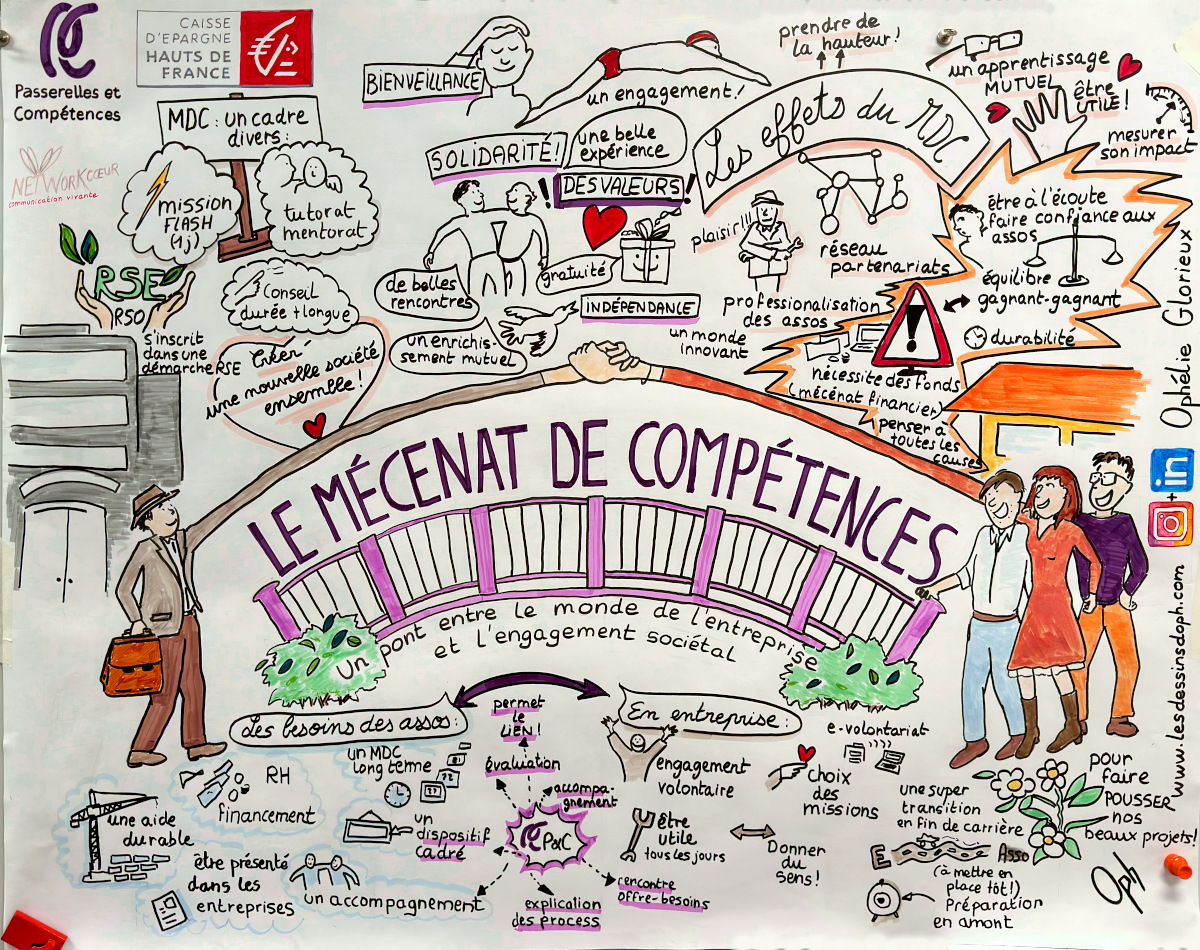 Passerelles et
Compétences
CAISSE
D'EPARGNE
HAUTS DE
FRANCE
NETWORKCŒUR
communication vivante
MDC : un cadre
divers :
mission
FLASH
(1j)
tutorat
mentorat
Conseil
durée + longue
RSE
RSO
s'inscrit
dans une
démarche RSE
Créer
une nouvelle société
ensemble !
BIENVEILLANCE
un engagement !
SOLIDARITÉ !
une belle
expérience
DES VALEURS !
de belles
rencontres
gratuité
INDÉPENDANCE
un enrichis-
sement mutuel
prendre de
la hauteur !
Les effets du MDC
plaisir !!!
réseau
partenariats
professionalisation
des assos
un monde
innovant
un apprentissage
MUTUEL
être
UTILE !
mesurer
son impact
être à l'écoute
faire confiance aux
assos
équilibre
gagnant-gagnant
durabilité
!
nécessite des fonds
(mécénat financier)
penser à
toutes les
causes
LE MÉCENAT DE COMPÉTENCES
un pont entre le monde de l'entreprise
et l'engagement sociétal
Les besoins des assos :
RH
financement
un MDC
long terme
une aide
durable
un
dispositif
cadré
être présenté
dans les
entreprises
un accompagnement
permet
le
LIEN !
évaluation
accompa-
gnement
P&C
rencontre
offre-besoins
explication
des process
En entreprise :
engagement
volontaire
e-volontariat
choix
des
missions
être
utile
tous les jours
Donner
du
sens !
une super
transition
en fin de carrière
E
Asso
(à mettre en
place tôt !)
Préparation
en amont
pour
faire
POUSSER
nos
beaux projets !
Oph
Ophélie Glorieux
in
+
www.lesdessinsdoph.com